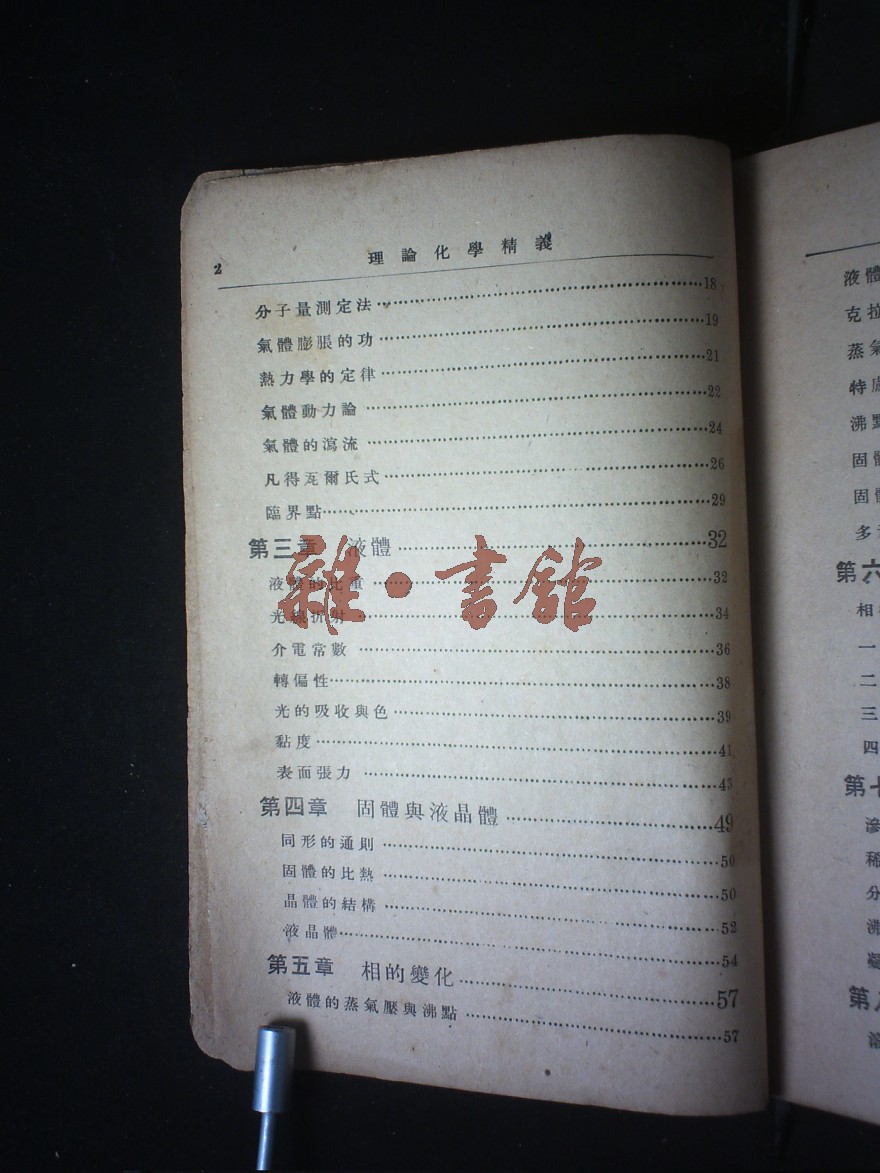 2 理論化學精義
分子量測定法……18
氣體膨脹的功……19
熱力學的定律……21
氣體動力論……22
氣體的瀉流……24
凡得瓦爾氏式……26
臨界點……29
第三章 液體……32
液體的比重……32
光線折射……34
介電常數……36
轉偏性……38
光的吸收與色……39
黏度……41
表面張力……43
第四章 固體與液晶體……49
同形的通則……50
固體的比熱……50
晶體的結構……52
液晶體……54
第五章 相的變化……57
液體的蒸氣壓與沸點……57
雜·書館
液體
克拉
蒸氣
特
沸點
固體
固體
多
第六
相
一
二
三
四
第七
滲
稀
分
沸
第八
溶